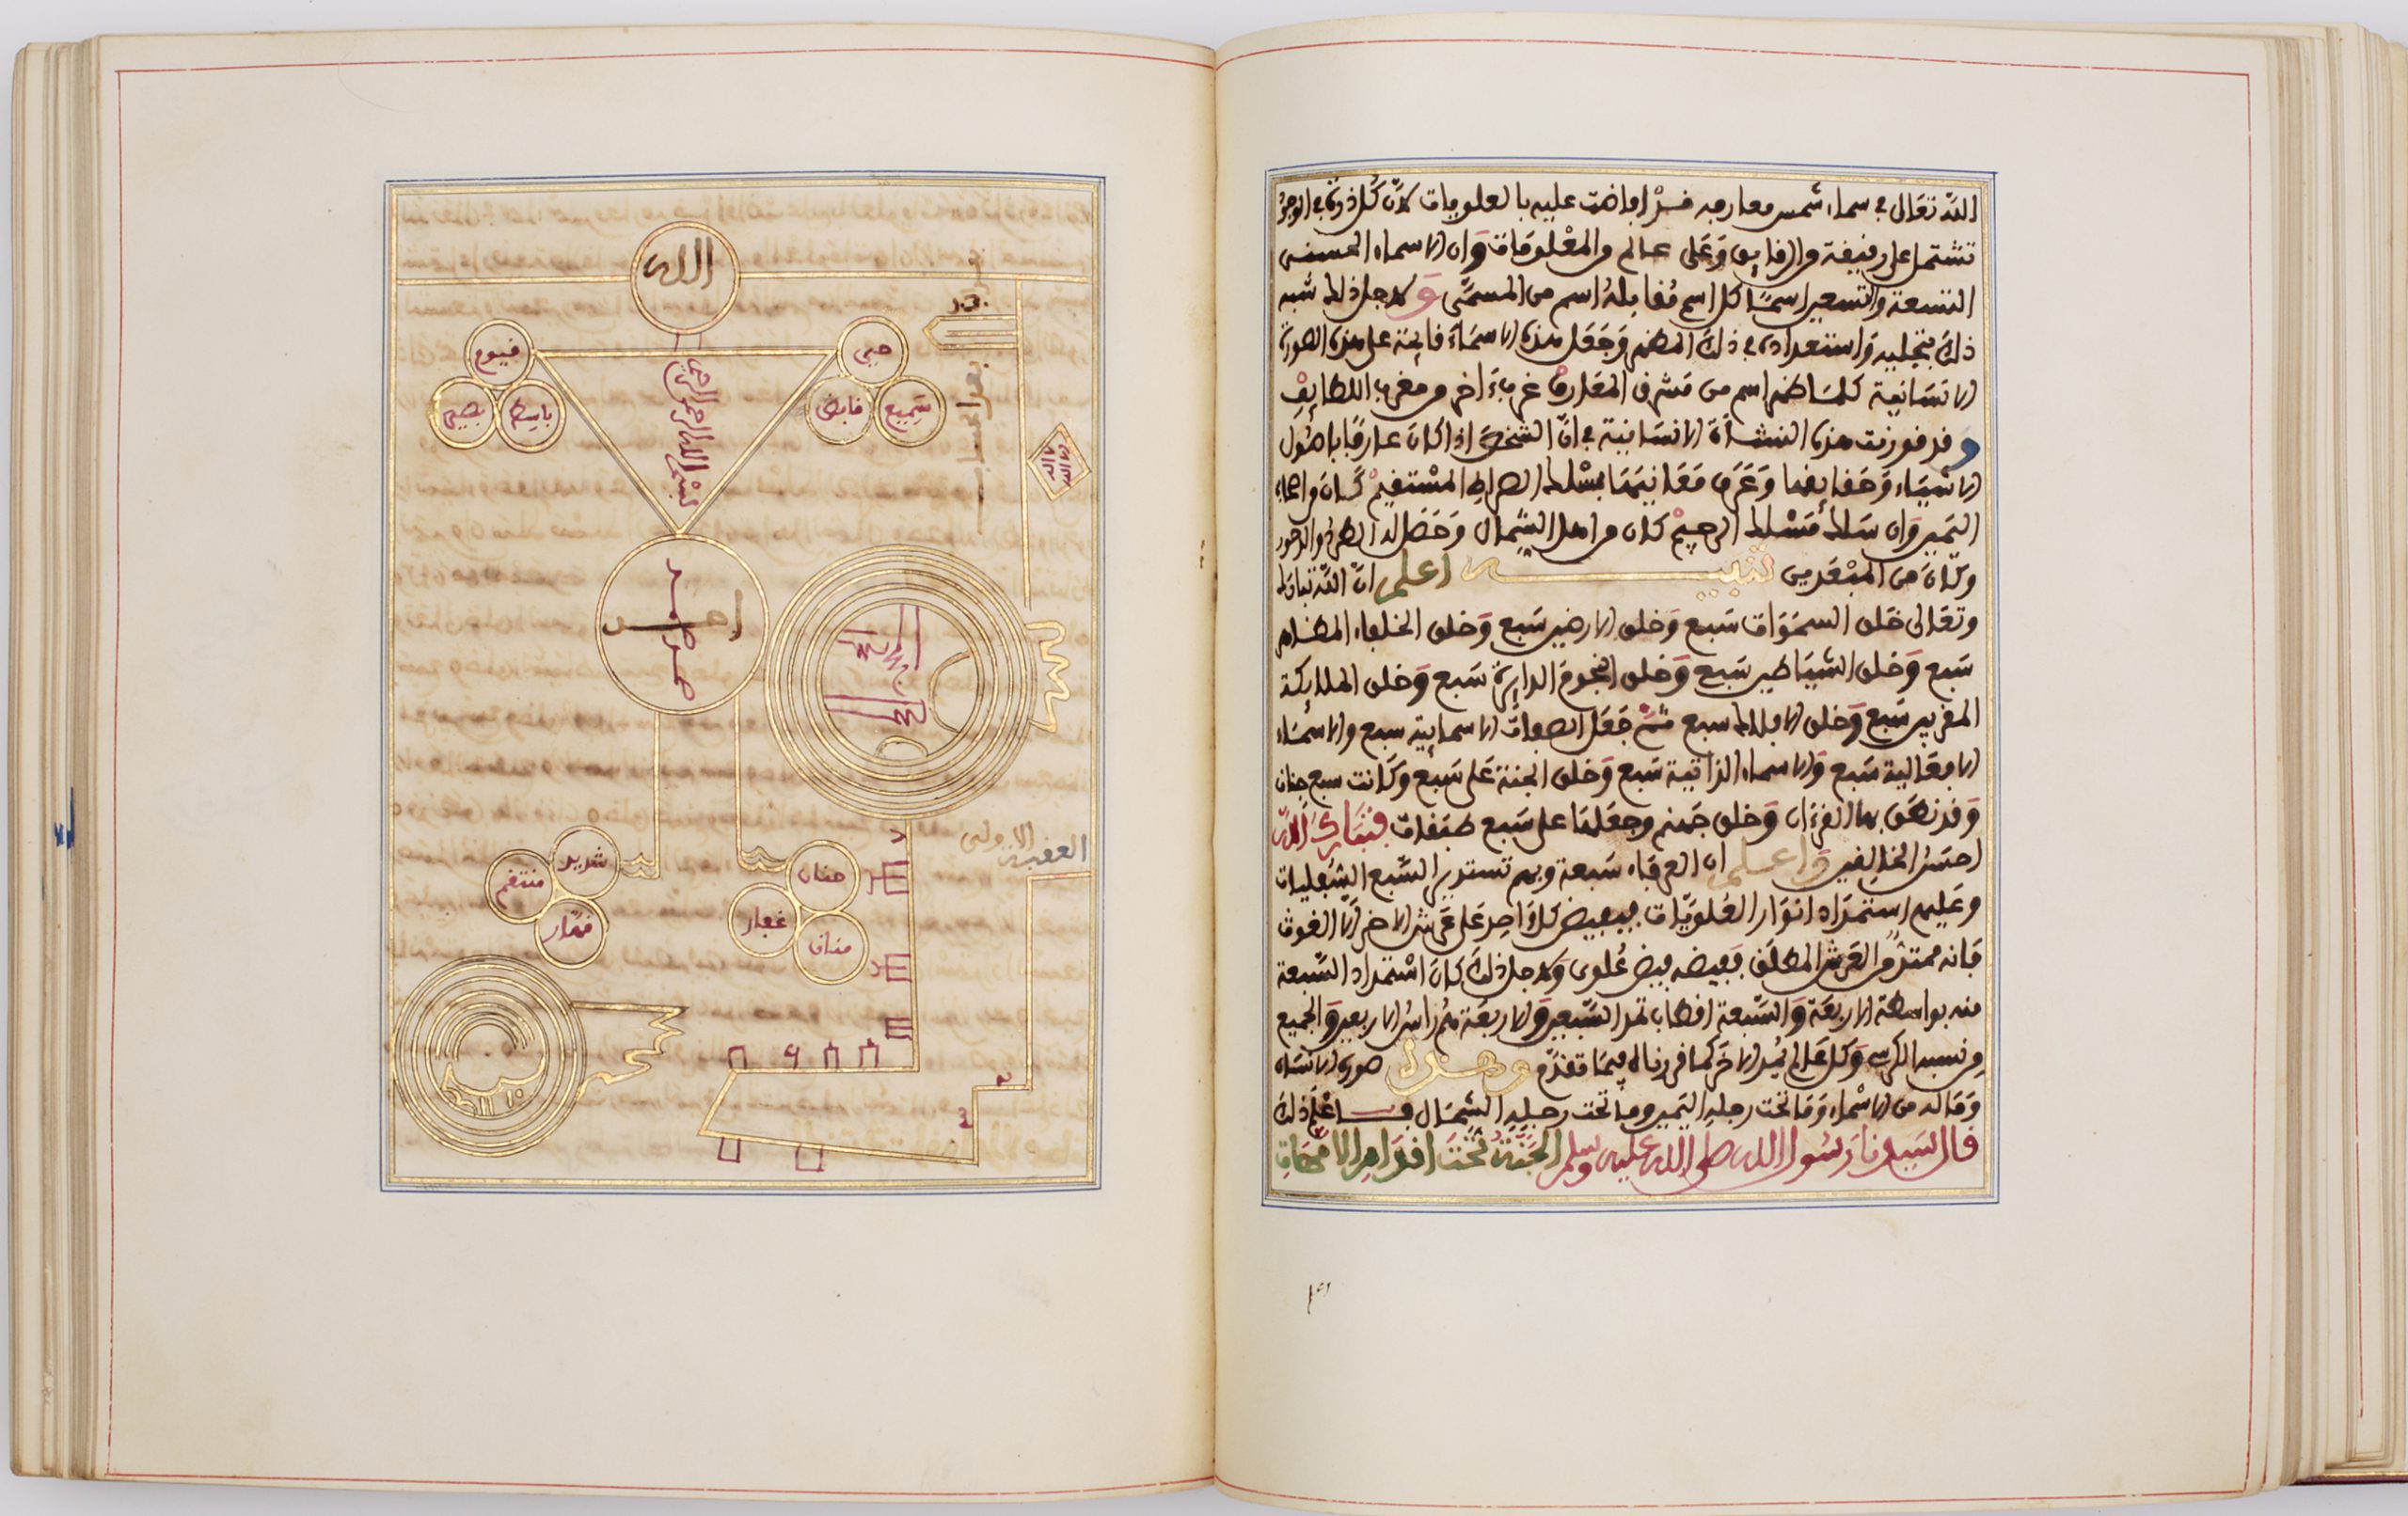 الله تعالى في سماء شمس معارفه فـ اذا فاضت عليه بالعلويات لان كل ذرة في الوجود
تشتمل على رقيقة من الرقايق وعلى عالم من المخلوقات وان الاسماء الحسنى
التسعة والتسعين اسمًا كل اسم مقابله اسم من المسمى ولاجل ذلك شبه
ذلك بتجليه واستعداده في ذلك المظهر وجعل هذه الاسماء قايمة على هذه الصورة
الانسانية كلما ظهر اسم من مشرق المعارف غرب اخر من مغرب اللطايف
و قد فوزنت هذه النشأة الانسانية في ان الشخص اذا كان عارفا باصول
الاشياء وحقايقها وعرف معانيها فسلك الصراط المستقيم كان من اصحاب
اليمين وان سلك مسلك الرجيم كان من اهل الشمال وحصل له الطرد
وكان من المبعدين تنبيه اعلم ان الله تبارك
وتعالى خلق السموات سبع وخلق الارضين سبع وخلق الخلفاء
سبع وخلق الشياطين سبع وخلق النجوم الدايرة سبع وخلق الملايكة
المقربين سبع وخلق الافلاك سبع ثم جعل الصفات الاسمايية سبع والاسماء
الافعالية سبع والاسماء الذاتية سبع وخلق الجنة على سبع وكانت سبع جنان
وقد نطق بها القرءان وخلق جهنم وجعلها على سبع طبقات فتبارك الله
احسن الخالقين واعلم ان العرفاء سبعة وبهم تستدير السبع السفليات
وعليهم استمداد انوار العلويات فيفيض كل واحد على عرش الاخر الا الغوث
فانه ممتد من العرش المطلق ففيضه فيض علوى ولاجل ذلك كان استمداد السبعة
منه بواسطة الاربعة والسبعة اقطاب تمد السبعين والاربعة هم راس الاربعين والجميع
من نسبه الكرسى وكل عالم يمد الاخر كما قررناه فيما تقدم وهذه صورة الانسان
وما له من الاسماء وما تحت رجله اليمين وما تحت رجله الشمال فاعلم ذلك
قال سيدنا رسول الله صلى الله عليه وسلم الجنة تحت اقدام الامهات
الله
حي
سميع
قابض
قيوم
باسط
بصير
بسم الله الرحمن الرحيم
احد
صمد
العقبة الاولى
حنان
غفار
منان
شديد
منتقم
قهار